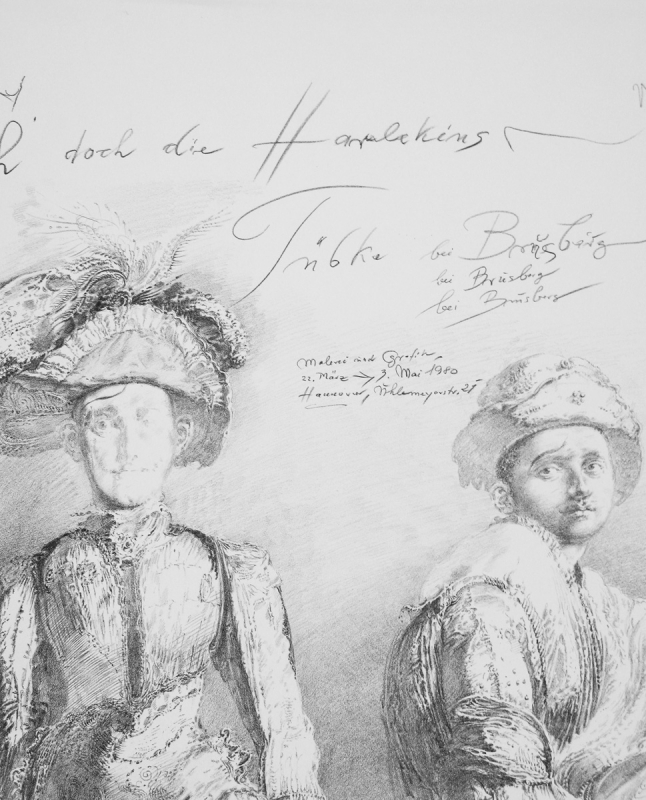 doch die Harlekins
Tübke bei Brusberg
bei Brusberg
bei Brusberg
Malerei und Grafik,
22. März → 3. Mai 1980
Hannover, Uhlemeyerstr. 21